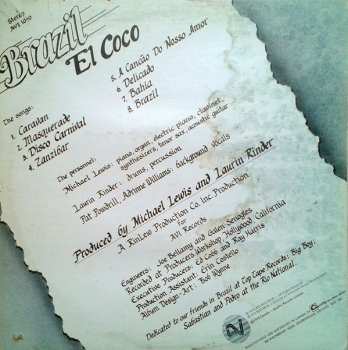 Stereo
Brazil
El Coco
The songs:
1. Caravan
2. Masquerade
3. Disco Carnival
4. Zanzibar
5. A Canção Do Nosso Amor
6. Delicado
7. Bahia
8. Brazil
The personnel:
Michael Lewis: piano, organ, electric piano, clavinet,
synthesizers, tenor sax, acoustic guitar
Laurin Rinder: drums, percussion
Pat Powdrill, Adrime Williams: background vocals
Produced by Michael Lewis and Laurin Rinder
A RinLew Production Co. Inc. Production
for
AVI Records
Engineers: Joe Bellamy and Galen Senogles
Recorded at Producers Workshop, Hollywood California
Executive Producers: Ed Cobb and Ray Harris
Production Assistant: Erin
Album Design-Art: Bob Wynne
Dedicated to our friends in Brazil at Top Tape Records: Big Boy,
Sabastian and Pedro at the Rio National.